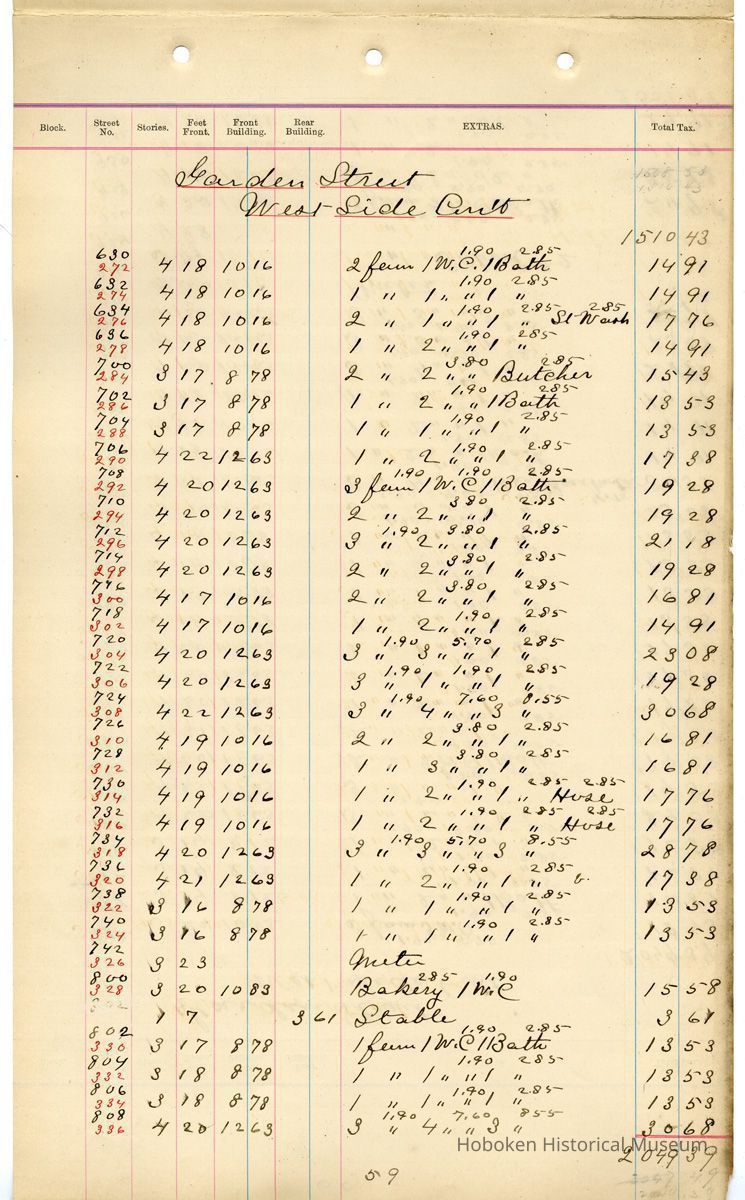 Block. Street No. Stories. Feet Front. Front Building. Rear Building. EXTRAS. Total Tax.
Garden Street
West Side Con't
1510 43
630 1.90 2.85
272 4 18 10 16 2 fam 1 W.C. 1 Bath 14 91
632 1.90 2.85
274 4 18 10 16 1 " 1 " " 1 " 14 91
634 1.90 2.85 2.85
276 4 18 10 16 2 " 1 " " 1 " St Wash 17 76
636 1.90 2.85
278 4 18 10 16 1 " 2 " " 1 " 14 91
700 3.80 2.85
284 3 17 8 78 2 " 2 " " Butcher 15 43
702 1.90 2.85
286 3 17 8 78 1 " 2 " " 1 Bath 13 53
704 1.90 2.85
288 3 17 8 78 1 " 1 " " 1 " 13 53
706 1.90 2.85
290 4 22 12 63 1 " 2 " " 1 " 17 38
708 1.90 1.90 2.85
292 4 20 12 63 3 fam 1 W.C 1 Bath 19 28
710 3.80 2.85
294 4 20 12 63 2 " 2 " " 1 " 19 28
712 1.90 3.80 2.85
296 4 20 12 63 3 " 2 " " 1 " 21 18
714 3.80 2.85
298 4 20 12 63 2 " 2 " " 1 " 19 28
716 3.80 2.85
300 4 17 10 16 2 " 2 " " 1 " 16 81
718 1.90 2.85
302 4 17 10 16 1 " 2 " " 1 " 14 91
720 1.90 5.70 2.85
304 4 20 12 63 3 " 3 " " 1 " 23 08
722 1.90 1.90 2.85
306 4 20 12 63 3 " 1 " " 1 " 19 28
724 1.90 7.60 8.55
308 4 22 12 63 3 " 4 " " 3 " 30 68
726 3.80 2.85
310 4 19 10 16 2 " 2 " " 1 " 16 81
728 3.80 2.85
312 4 19 10 16 1 " 3 " " 1 " 16 81
730 1.90 2.85 2.85
314 4 19 10 16 1 " 2 " " 1 " Hose 17 76
732 1.90 2.85 2.85
316 4 19 10 16 1 " 2 " " 1 " Hose 17 76
734 1.90 5.70 8.55
318 4 20 12 63 3 " 3 " " 3 " 28 78
736 1.90 2.85
320 4 21 12 63 1 " 2 " " 1 " 17 38
738 1.90 2.85
322 3 16 8 78 1 " 1 " " 1 " 13 53
740 1.90 2.85
324 3 16 8 78 1 " 1 " " 1 " 13 53
742
326 3 23 Meter
800 2.85 1.90
328 3 20 10 83 Bakery 1 W.C 15 58
17 3 61 Stable 3 61
802 1.90 2.85
330 3 17 8 78 1 fam 1 W.C 1 Bath 13 53
804 1.90 2.85
332 3 18 8 78 1 " 1 " " 1 " 13 53
806 1.90 2.85
334 3 18 8 78 1 " 1 " " 1 " 13 53
808 1.90 7.60 8.55
336 4 20 12 63 3 " 4 " " 3 " 30 68
Hoboken Historical Museum
2049 39
59